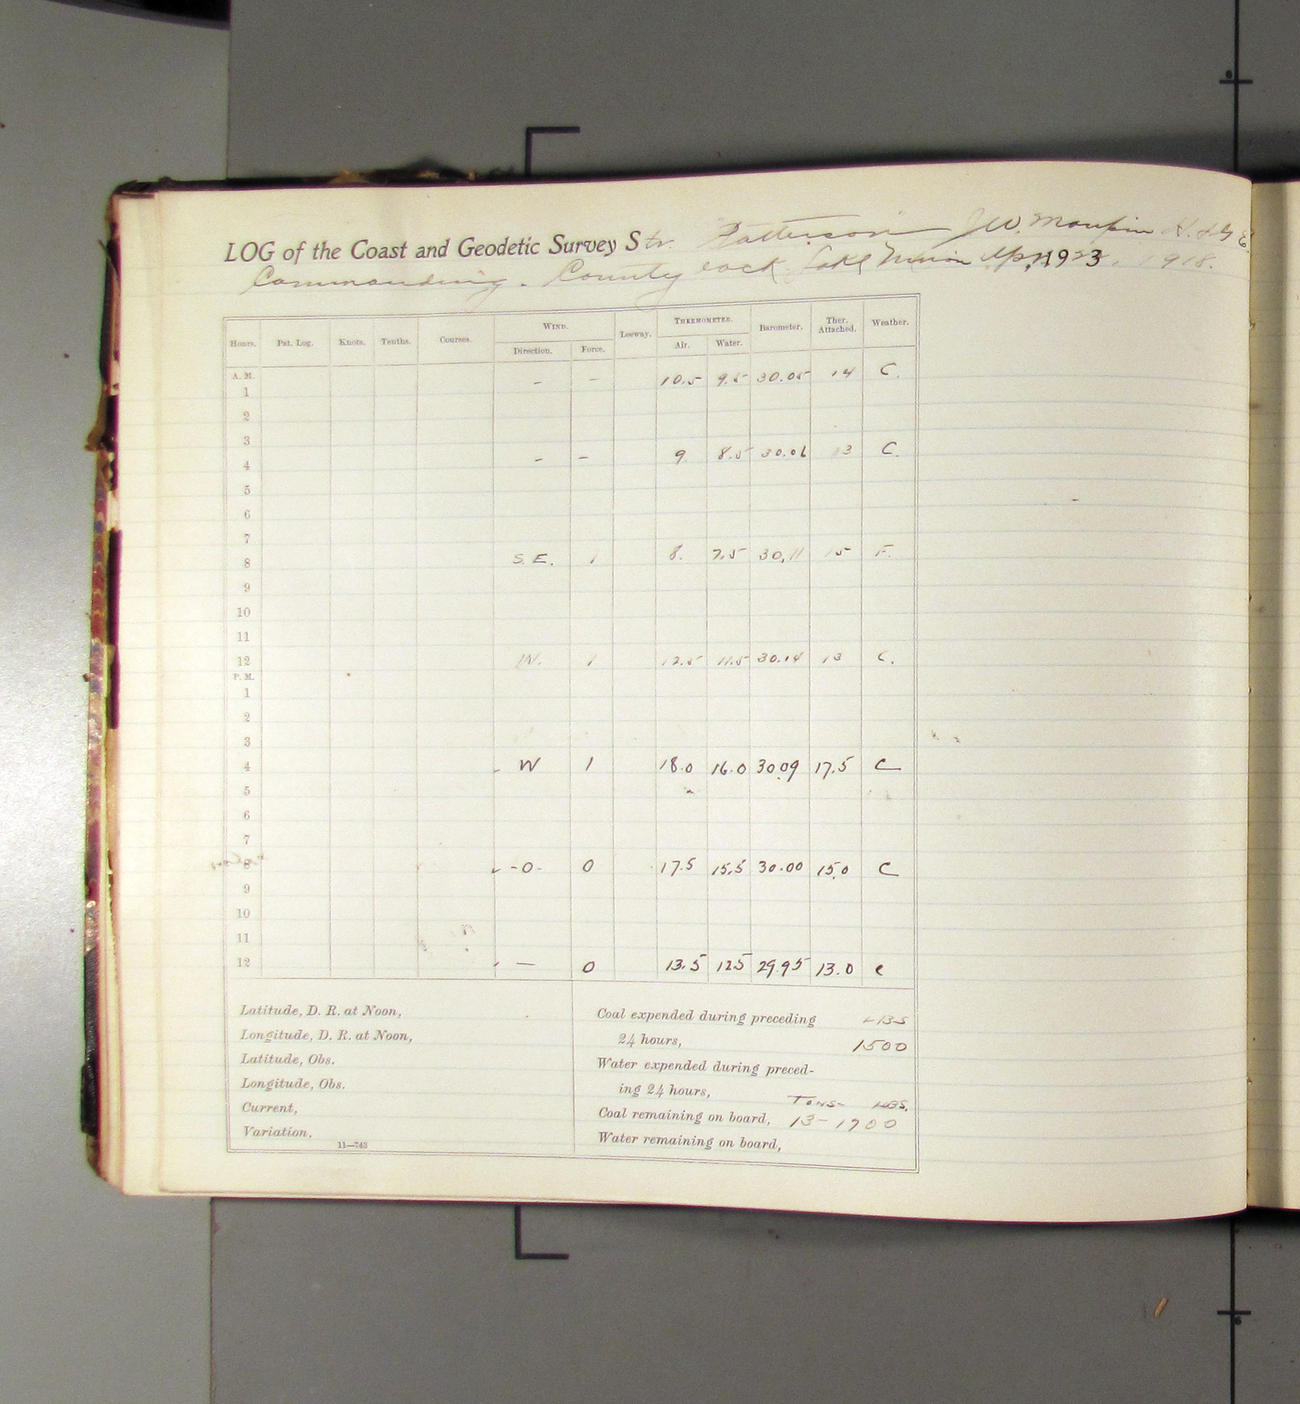 LOG of the Coast and Geodetic Survey Str. Patterson J.W. Maupin H. & G. E.
Commanding. County Lake Union 193 1918.
Hours. Pat. Log. Knots. Tenths. Courses. WIND. Leeway. THERMOMETER. Barometer. Ther. Attached. Weather.
Direction. Force. Air. Water.
A. M.
1 - - 10.5 9.5 30.05 14 C.
2
3
4 - - 9. 8.5 30.06 13 C.
5
6
7
8 S.E. 1 8. 7.5 30.11 15 F.
9
10
11
12 W. 1 12.5 11.5 30.14 13 C.
P. M.
1
2
3
4 W 1 18.0 16.0 30.09 17.5 C
5
6
7
8 -0- 0 17.5 15.5 30.00 15.0 C
9
10
11
12 — 0 13.5 12.5 29.95 13.0 c
Latitude, D. R. at Noon,
Longitude, D. R. at Noon,
Latitude, Obs.
Longitude, Obs.
Current,
Variation,
11—743
Coal expended during preceding LBS
24 hours, 1500
Water expended during preced-
ing 24 hours, TONS- LBS.
Coal remaining on board, 13-1900
Water remaining on board,